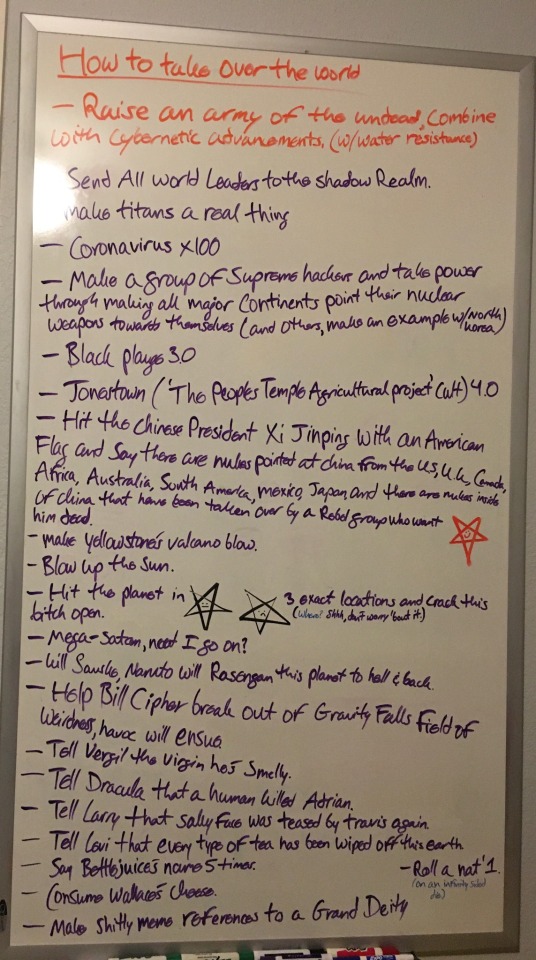 How to take over the world
– Raise an army of the undead, Combine
with Cybernetic advancements. (w/water resistance)
Send All world Leaders to the shadow Realm.
make titans a real thing
– Coronavirus x100
– Make a group of Supreme hackers and take power
through making all major Continents point their nuclear
weapons towards themselves (and others, make an example w/North
Korea)
– Black plauge 3.0
– Jonestown ('The Peoples Temple Agricultural project' Cult) 4.0
– Hit the Chinese President Xi Jinping With an American
Flag and Say there are nukes pointed at china from the U.S, U.K, Canada,
Africa, Australia, South America, mexico, Japan, and there are nukes inside
of china that have been taken over by a Rebel group who want
him dead.
– make Yellowstone's valcano blow.
– Blow up the Sun.
– Hit the planet in 3 exact locations and crack this
bitch open. (Where? Shhh, don't worry 'bout it)
– Mega-Satan, need I go on?
– Kill Sauske, Naruto will Rasengan this planet to hell & back.
– Help Bill Cipher break out of Gravity Falls field of
Weirdness, havoc will ensue
– Tell Vergil the Virgin he's Smelly.
– Tell Dracula that a human killed Adrian.
– Tell Larry that sally face was teased by travis again.
– Tell Levi that every type of tea has been wiped off this earth.
– Say Bettlejuice's name 5 times.
– Roll a nat '1.
(on an infinity sided
die)
– Consume Wallace's Cheese.
– Make shitty meme references to a Grand Deity